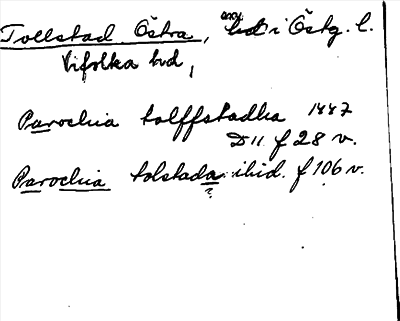 Tollstad Östra, sn i Östg. l.
Vifolka hd,
Parochia tolffstadha 1447
D 11 f 28 v.
Parochia tolstada ibid. f 106 v.
?